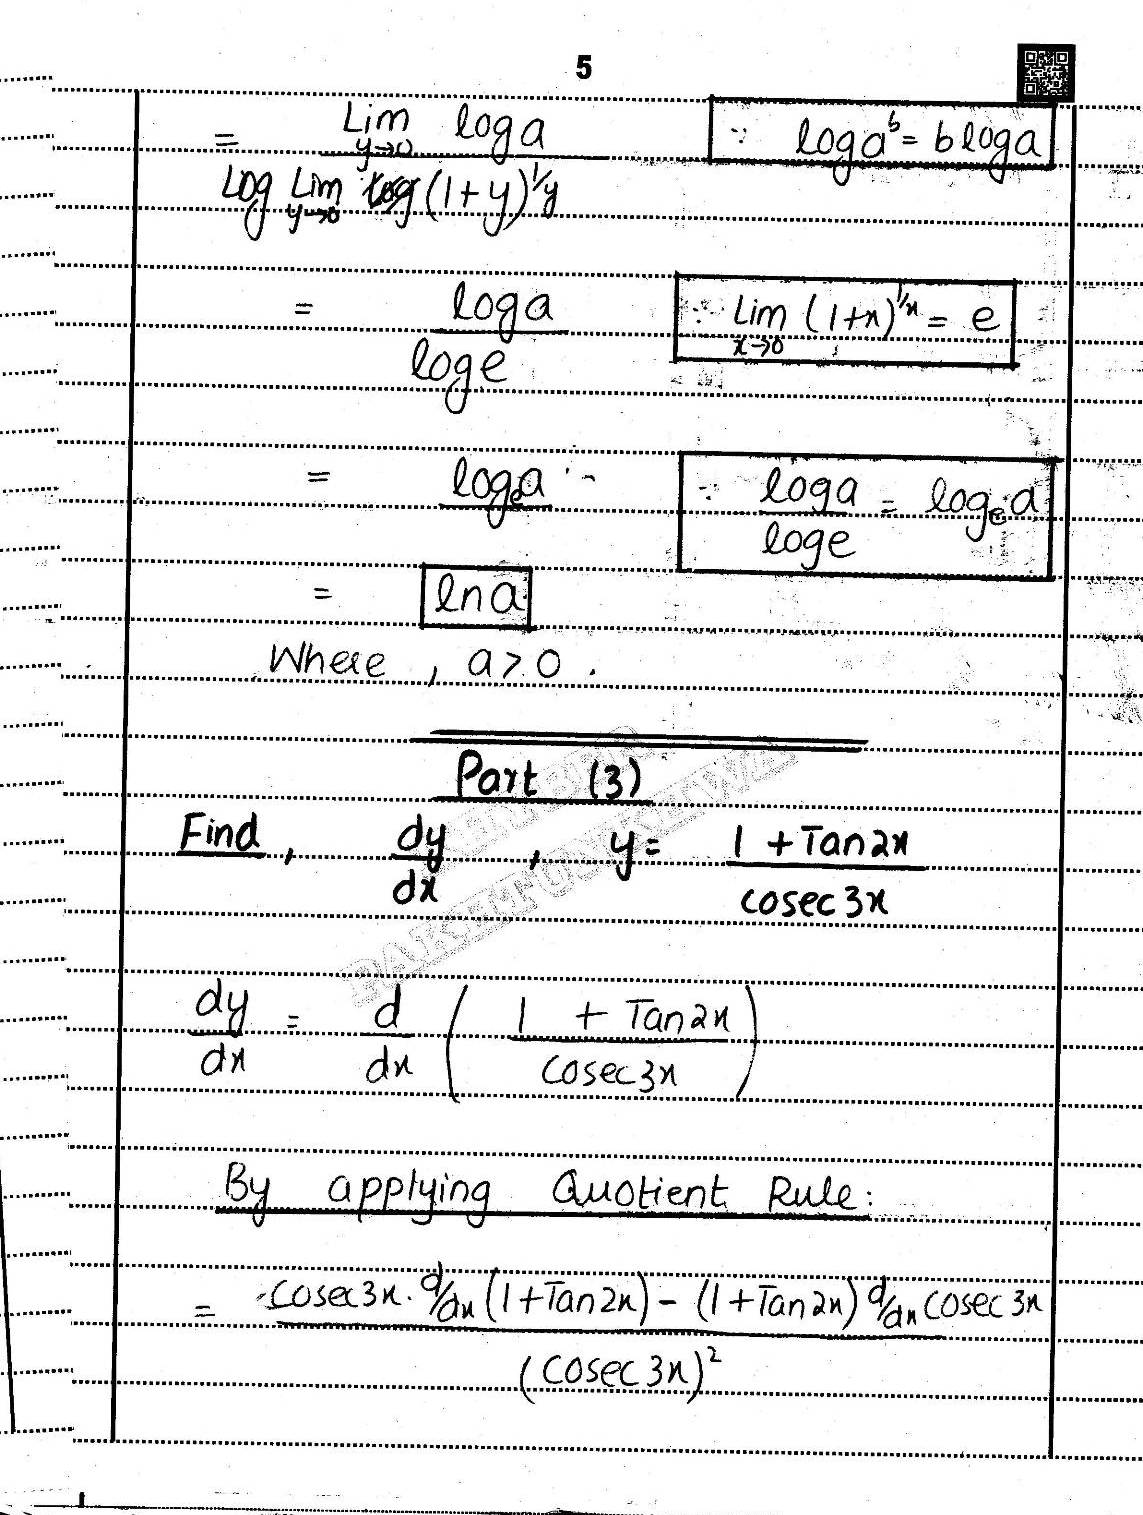 5
= Lim y→0 log a ∵ log a^b = b log a
Log Lim y→0 (1+y)^1/y
= log a ∵ Lim x→0 (1+x)^1/x = e
log e
= log_e a ∵ log a / log e = log_e a
= ln a
Where , a>0 .
Part (3)
Find , dy/dx , y = 1 + Tan2x / cosec3x
dy/dx = d/dx ( 1 + Tan2x / cosec3x )
By applying Quotient Rule:
= cosec3x . d/dx (1+Tan2x) - (1+Tan2x) d/dx cosec3x
(cosec3x)^2